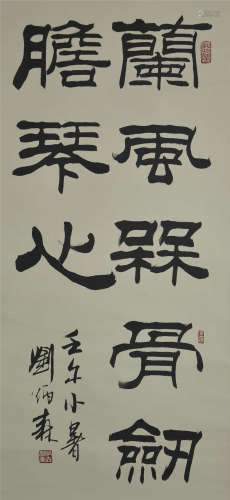 蘭風槑骨劔
膽琴心
壬午小暑
劉炳森